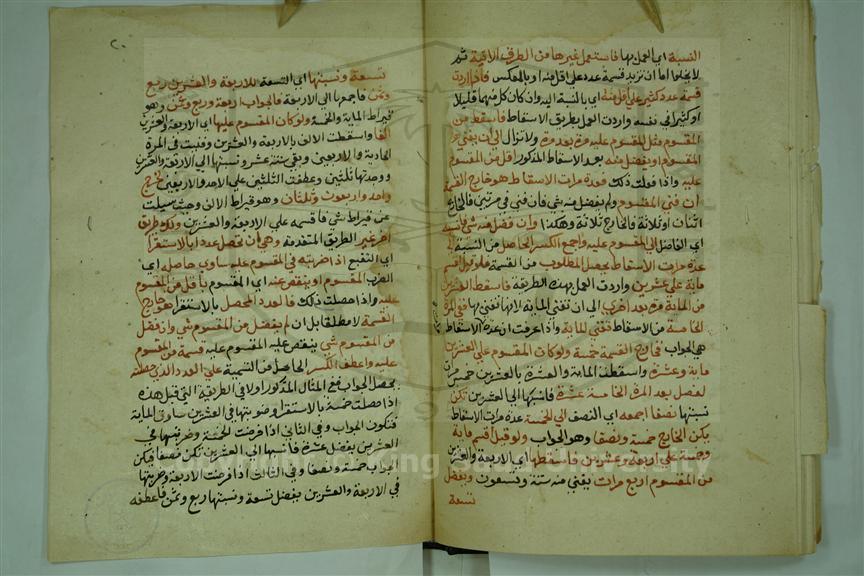 النسبة اي العمل بها فاستعمل غيرها من الطرق الاتية ثم
لا يخلوا اما ان تريد قسمة عدد على اقل منه او بالعكس فاذا اردت
قسمة عدد كثير على اقل منه اي بالنسبة اليه وان كان كل منهما قليلا
او كثيرا في نفسه واردت العمل بطريق الاسقاط فاسقط من
المقسوم مثل المقسوم عليه مرة بعد مرة ولا تزال الى ان يفنى
المقسوم او يفضل منه بعد الاسقاط المذكور اقل من المقسوم
عليه واذا فعلت ذلك فعدة مرات الاسقاط هو خارج القسمة
ان فنى المقسوم ولم يفضل منه شي فان فني في مرتين فالخارج
اثنان او ثلاثة فالخارج ثلاثة وهكذا وان فضل منه شي فانسبه
اي الفاضل الى المقسوم عليه واجمع الكسر الحاصل من النسبة الى
عدة مرات الاسقاط يحصل المطلوب من القسمة فلو قيل اقسم
ماية على عشرين واردت العمل بهذه الطريقة فاسقط العشرين
من الماية مرة بعد اخرى الى ان تفني الماية لانها تفنى بها في المرة
الخامسة من الاسقاط فتفني الماية واذا عرفت ان عدة الاسقاط
هي الجواب فخارج القسمة خمسة ولو كان المقسوم على العشرين
ماية وعشرة واسقطت الماية والعشرة بالعشرين خمس مرات
لفضل بعد المرة الخامسة عشرة فانسبها الى العشرين تكن
نسبتها نصفا اجمعه اي النصف الى الخمسة عدة مرات الاسقاط
يكن الخارج خمسة ونصفا وهو الجواب ولو قيل اقسم ماية
وخمسة على اربعة وعشرين فاسقطها اي الاربعة والعشرين
من المقسوم اربع مرات يفنى منه ستة وتسعون ويفضل
تسعة
تسعة ونسبتها اي التسعة للاربعة والعشرين ربع
وثمن فاجمعها الى الاربعة فالجواب اربعة وربع وثمن وهو
قيراط الماية والخمسة ولو كان المقسوم عليها اي الاربعة والعشرين
الفا واسقطت الالف بالاربعة والعشرين وفنيت في المرة
الحادية والاربعين وبقي ستة عشر ونسبتها الى الاربعة والعشرين
ووجدتها ثلثين وعطفت الثلثين على الاحد والاربعين لخرج
واحد واربعون وثلثان وهو قيراط الالف وحيث سيلت
عن قيراط شي فاقسمه على الاربعة والعشرين ولك طريق
اخر غير الطريق المتقدمة وهي ان تحصل عددا بالاستقرا
اي التتبع اذا ضربته في المقسوم عليه ساوى حاصله اي
الضرب المقسوم او ينقص عنه اي المقسوم باقل من المقسوم
عليه واذا حصلت ذلك فالعدد المحصل بالاستقرا هو خارج
القسمة لا مطلقا بل ان لم يفضل من المقسوم شي وان فضل
من المقسوم شي ينقص عليه المقسوم عليه قسمة من المقسوم
عليه واعطف الكسر الحاصل من التسمية على العدد الذي حصلته
يحصل الجواب ففي المثال المذكور اولا في الطريقة التي قبل هذه
اذا حصلت خمسة بالاستقرا وضربتها في العشرين ساوى الماية
فتكون الجواب وفي الثاني اذا فرضت الخمسة وضربتها في
العشرين يفضل عشرة فانسبها الى العشرين تكن نصفا فيكن
الجواب خمسة ونصفا وفي الثالث اذا فرضت الاربعة وضربتها
في الاربعة والعشرين يفضل تسعة ونسبتها ربع وثمن فاعطفه